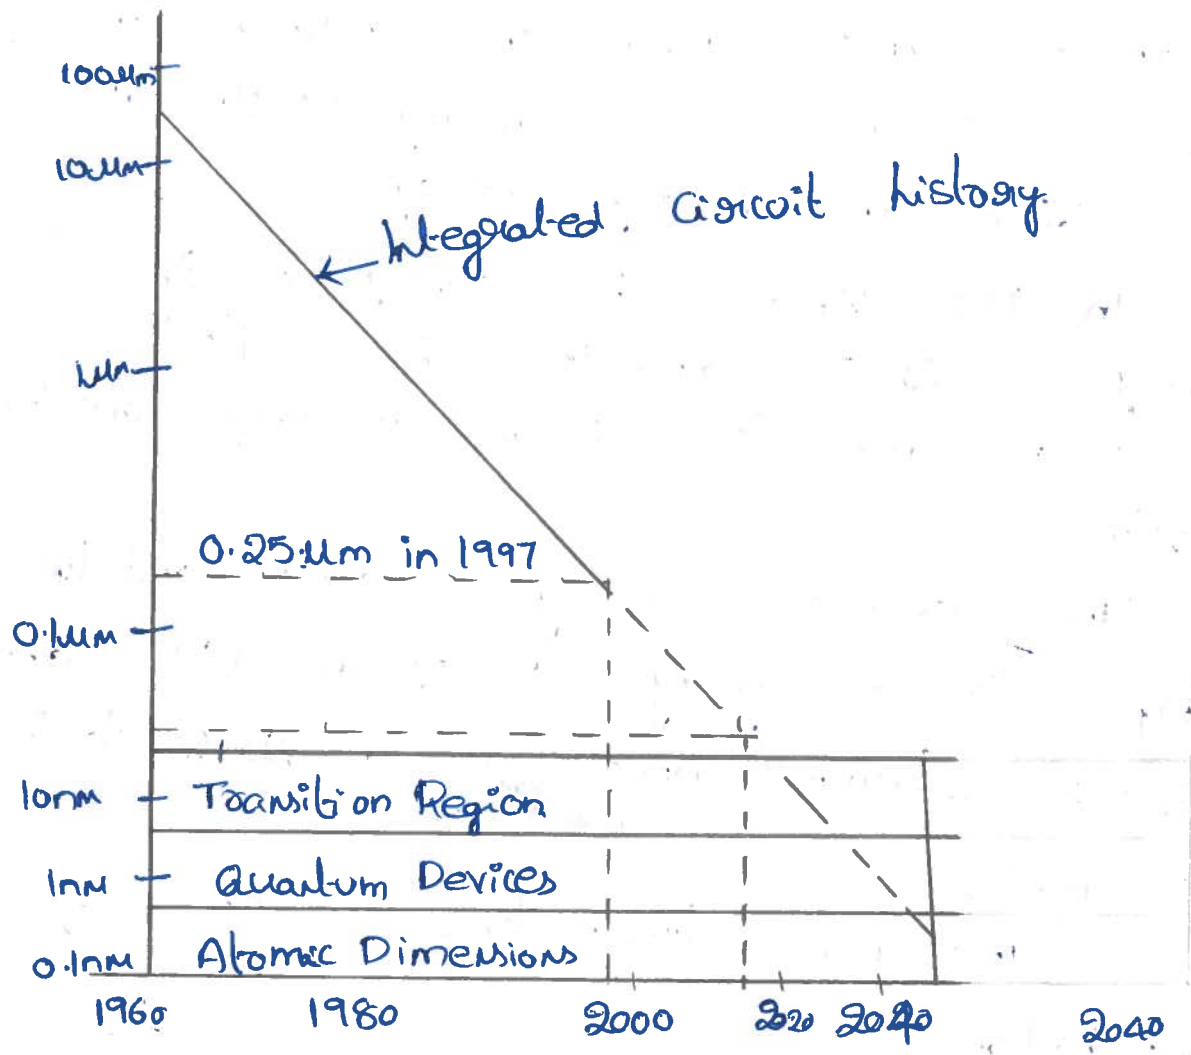 100µm
10µm
Integrated Circuit history
1µm
0.25µm in 1997
0.1µm
10nm
Transition Region
1nm
Quantum Devices
0.1nm
Atomic Dimensions
1960 1980 2000 2020 2040